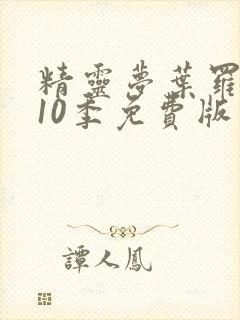 精靈夢葉羅
10季免費版
譚人鳳